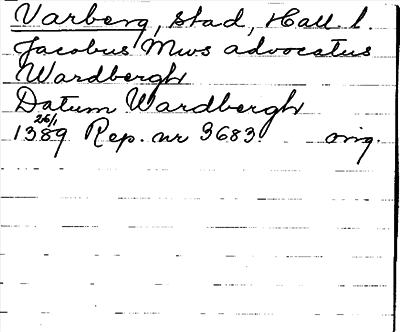 Varberg, stad, Hall. l.
Jacobus Mws advocatus
Wardbergh
Datum Wardbergh
26/1
1389 Rep. nr 3683. orig.